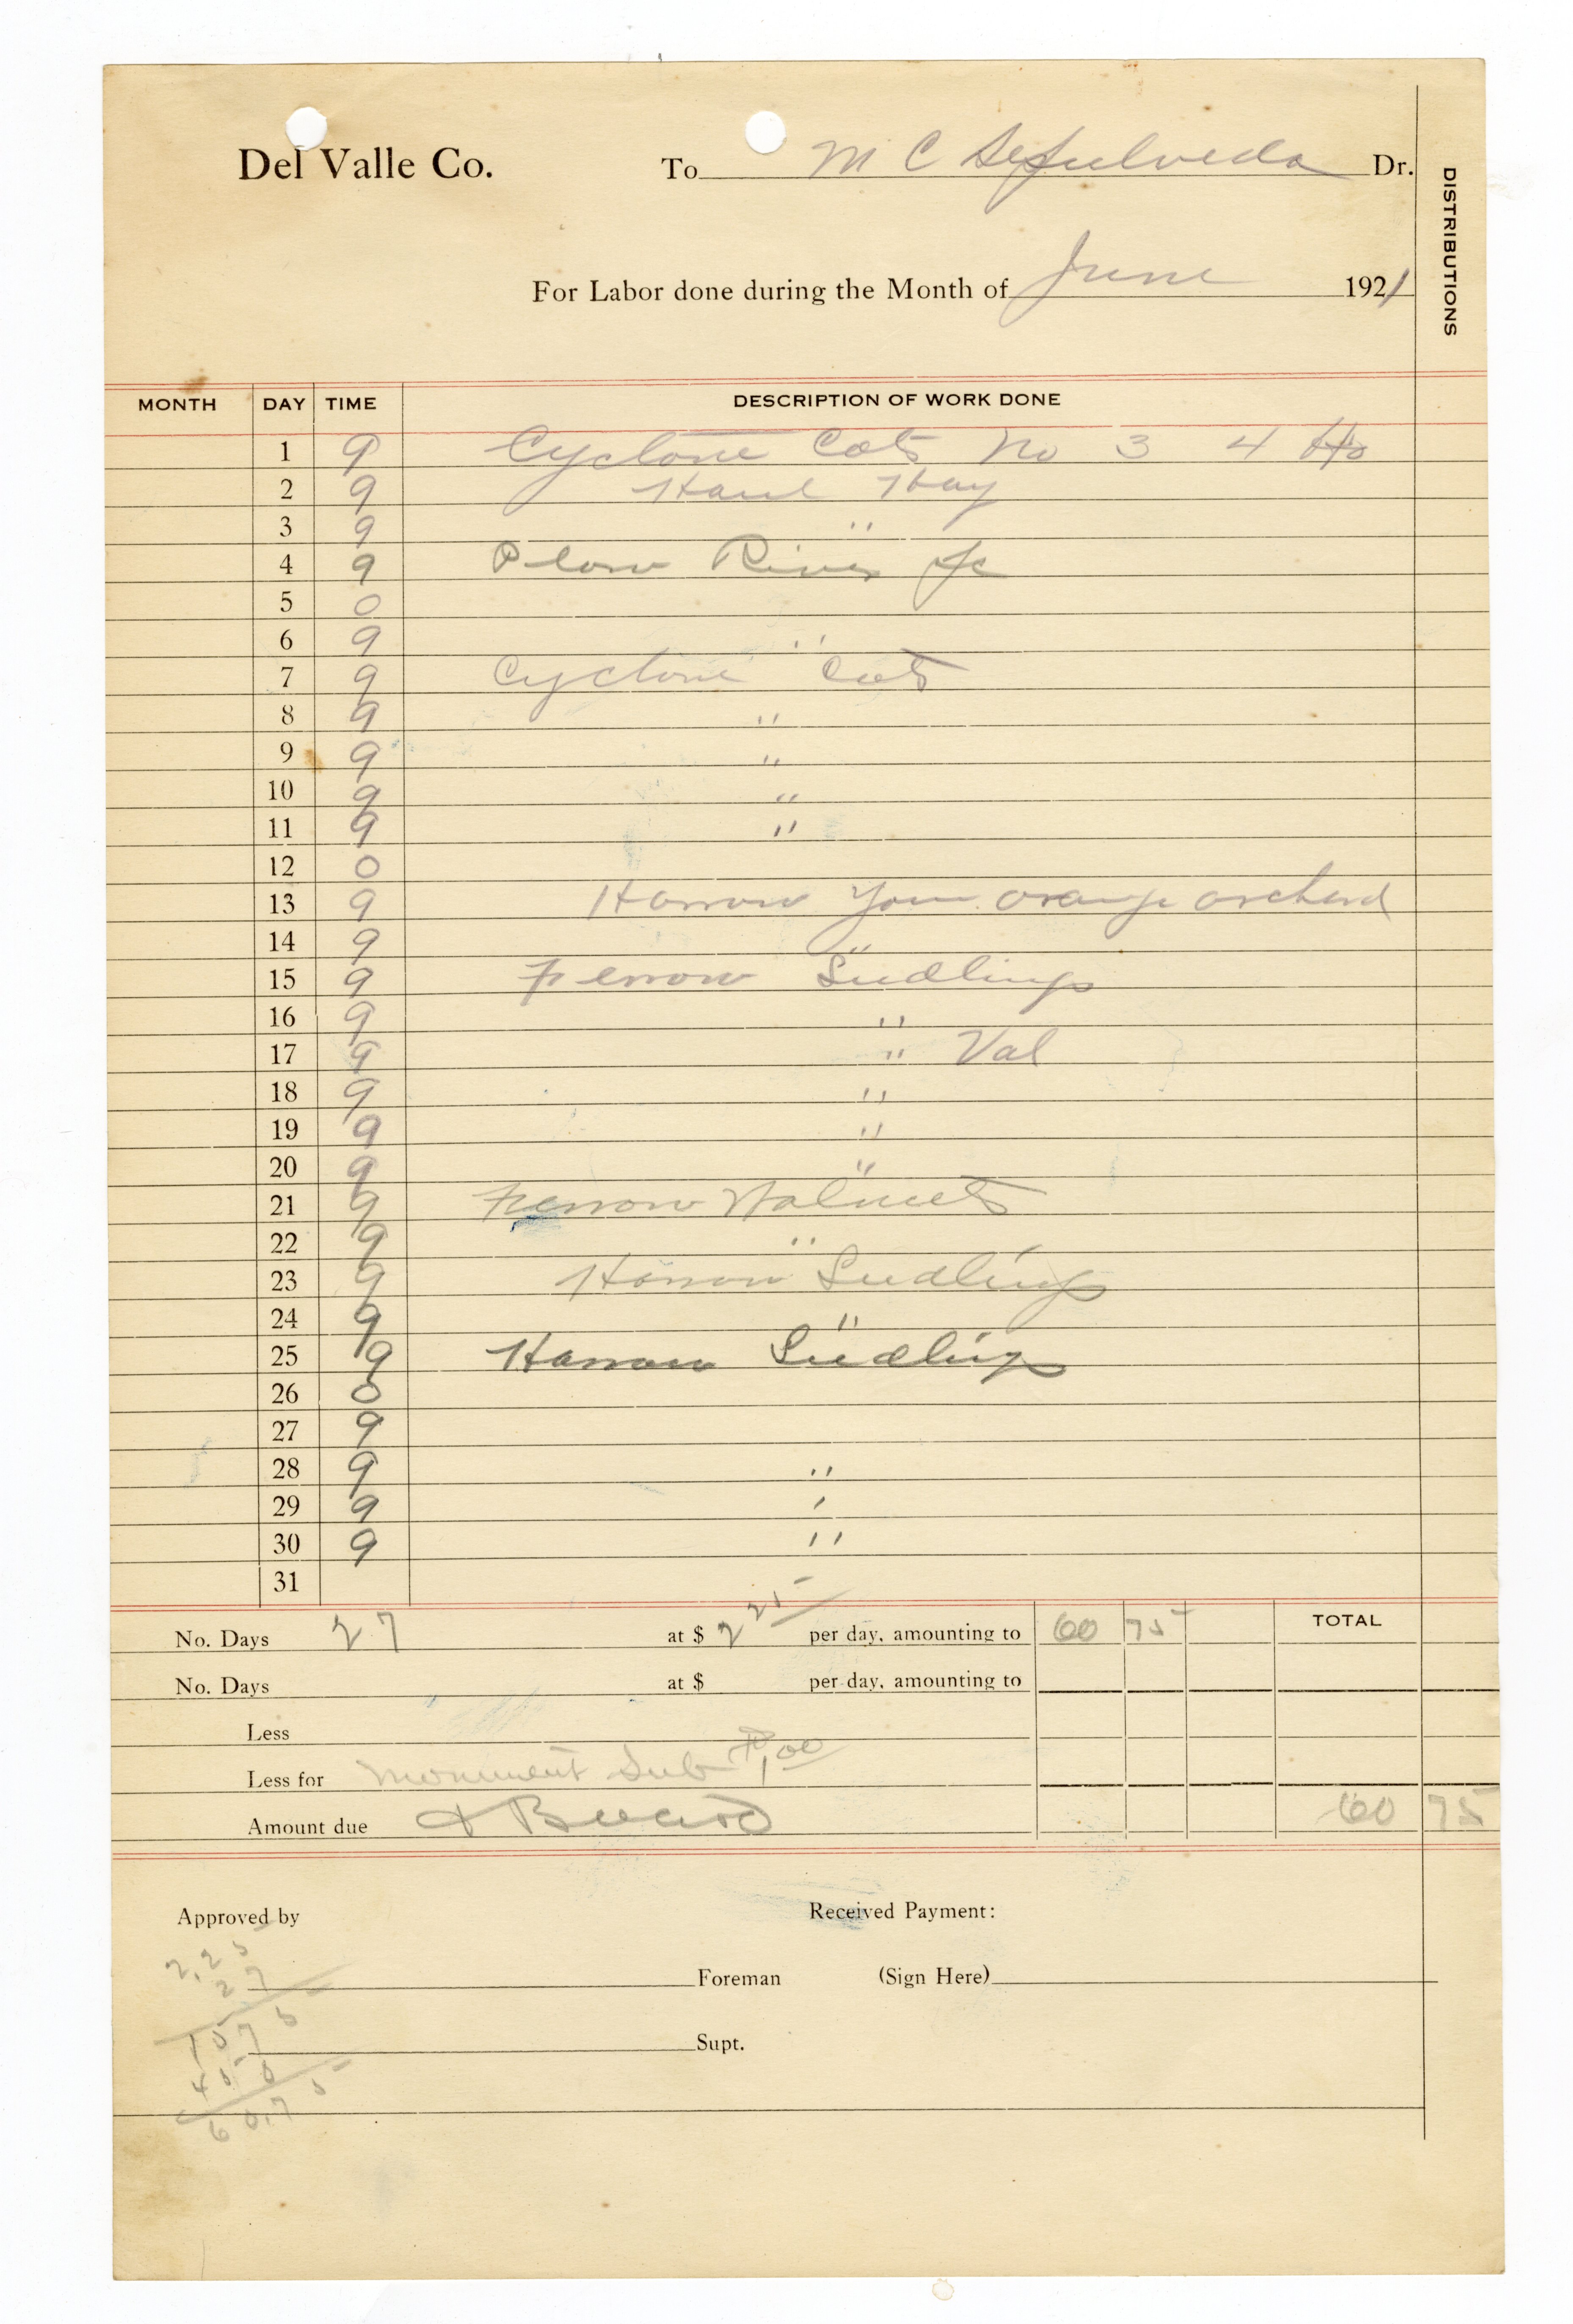 Del Valle Co. To M C Sepulveda Dr.
DISTRIBUTIONS
For Labor done during the Month of June 1921
MONTH DAY TIME DESCRIPTION OF WORK DONE
1 9 Cyclone Cots No 3 4 Hs
2 9 Haul Hay
3 9 "
4 9 Plow River
5 0
6 9 "
7 9 Cyclone Cots
8 9 "
9 9 "
10 9 "
11 9 "
12 0
13 9 Harrow Youn orange orchard
14 9 "
15 9 Furrow Seedlings
16 9 "
17 9 " Val
18 9 "
19 9 "
20 9 "
21 9 Furrow Walnuts
22 9 "
23 9 Harrow Seedlings
24 9 "
25 9 Harrow Seedlings
26 0
27 9
28 9 "
29 9 '
30 9 "
31
No. Days 27 at $ 2 25 per day, amounting to 60 75 TOTAL
No. Days at $ per day, amounting to
Less
Less for Monument Sub $1,00
Amount due + Board 60 75
Approved by Received Payment:
2.25
27
Foreman (Sign Here)
1575
Supt.
450
60.75